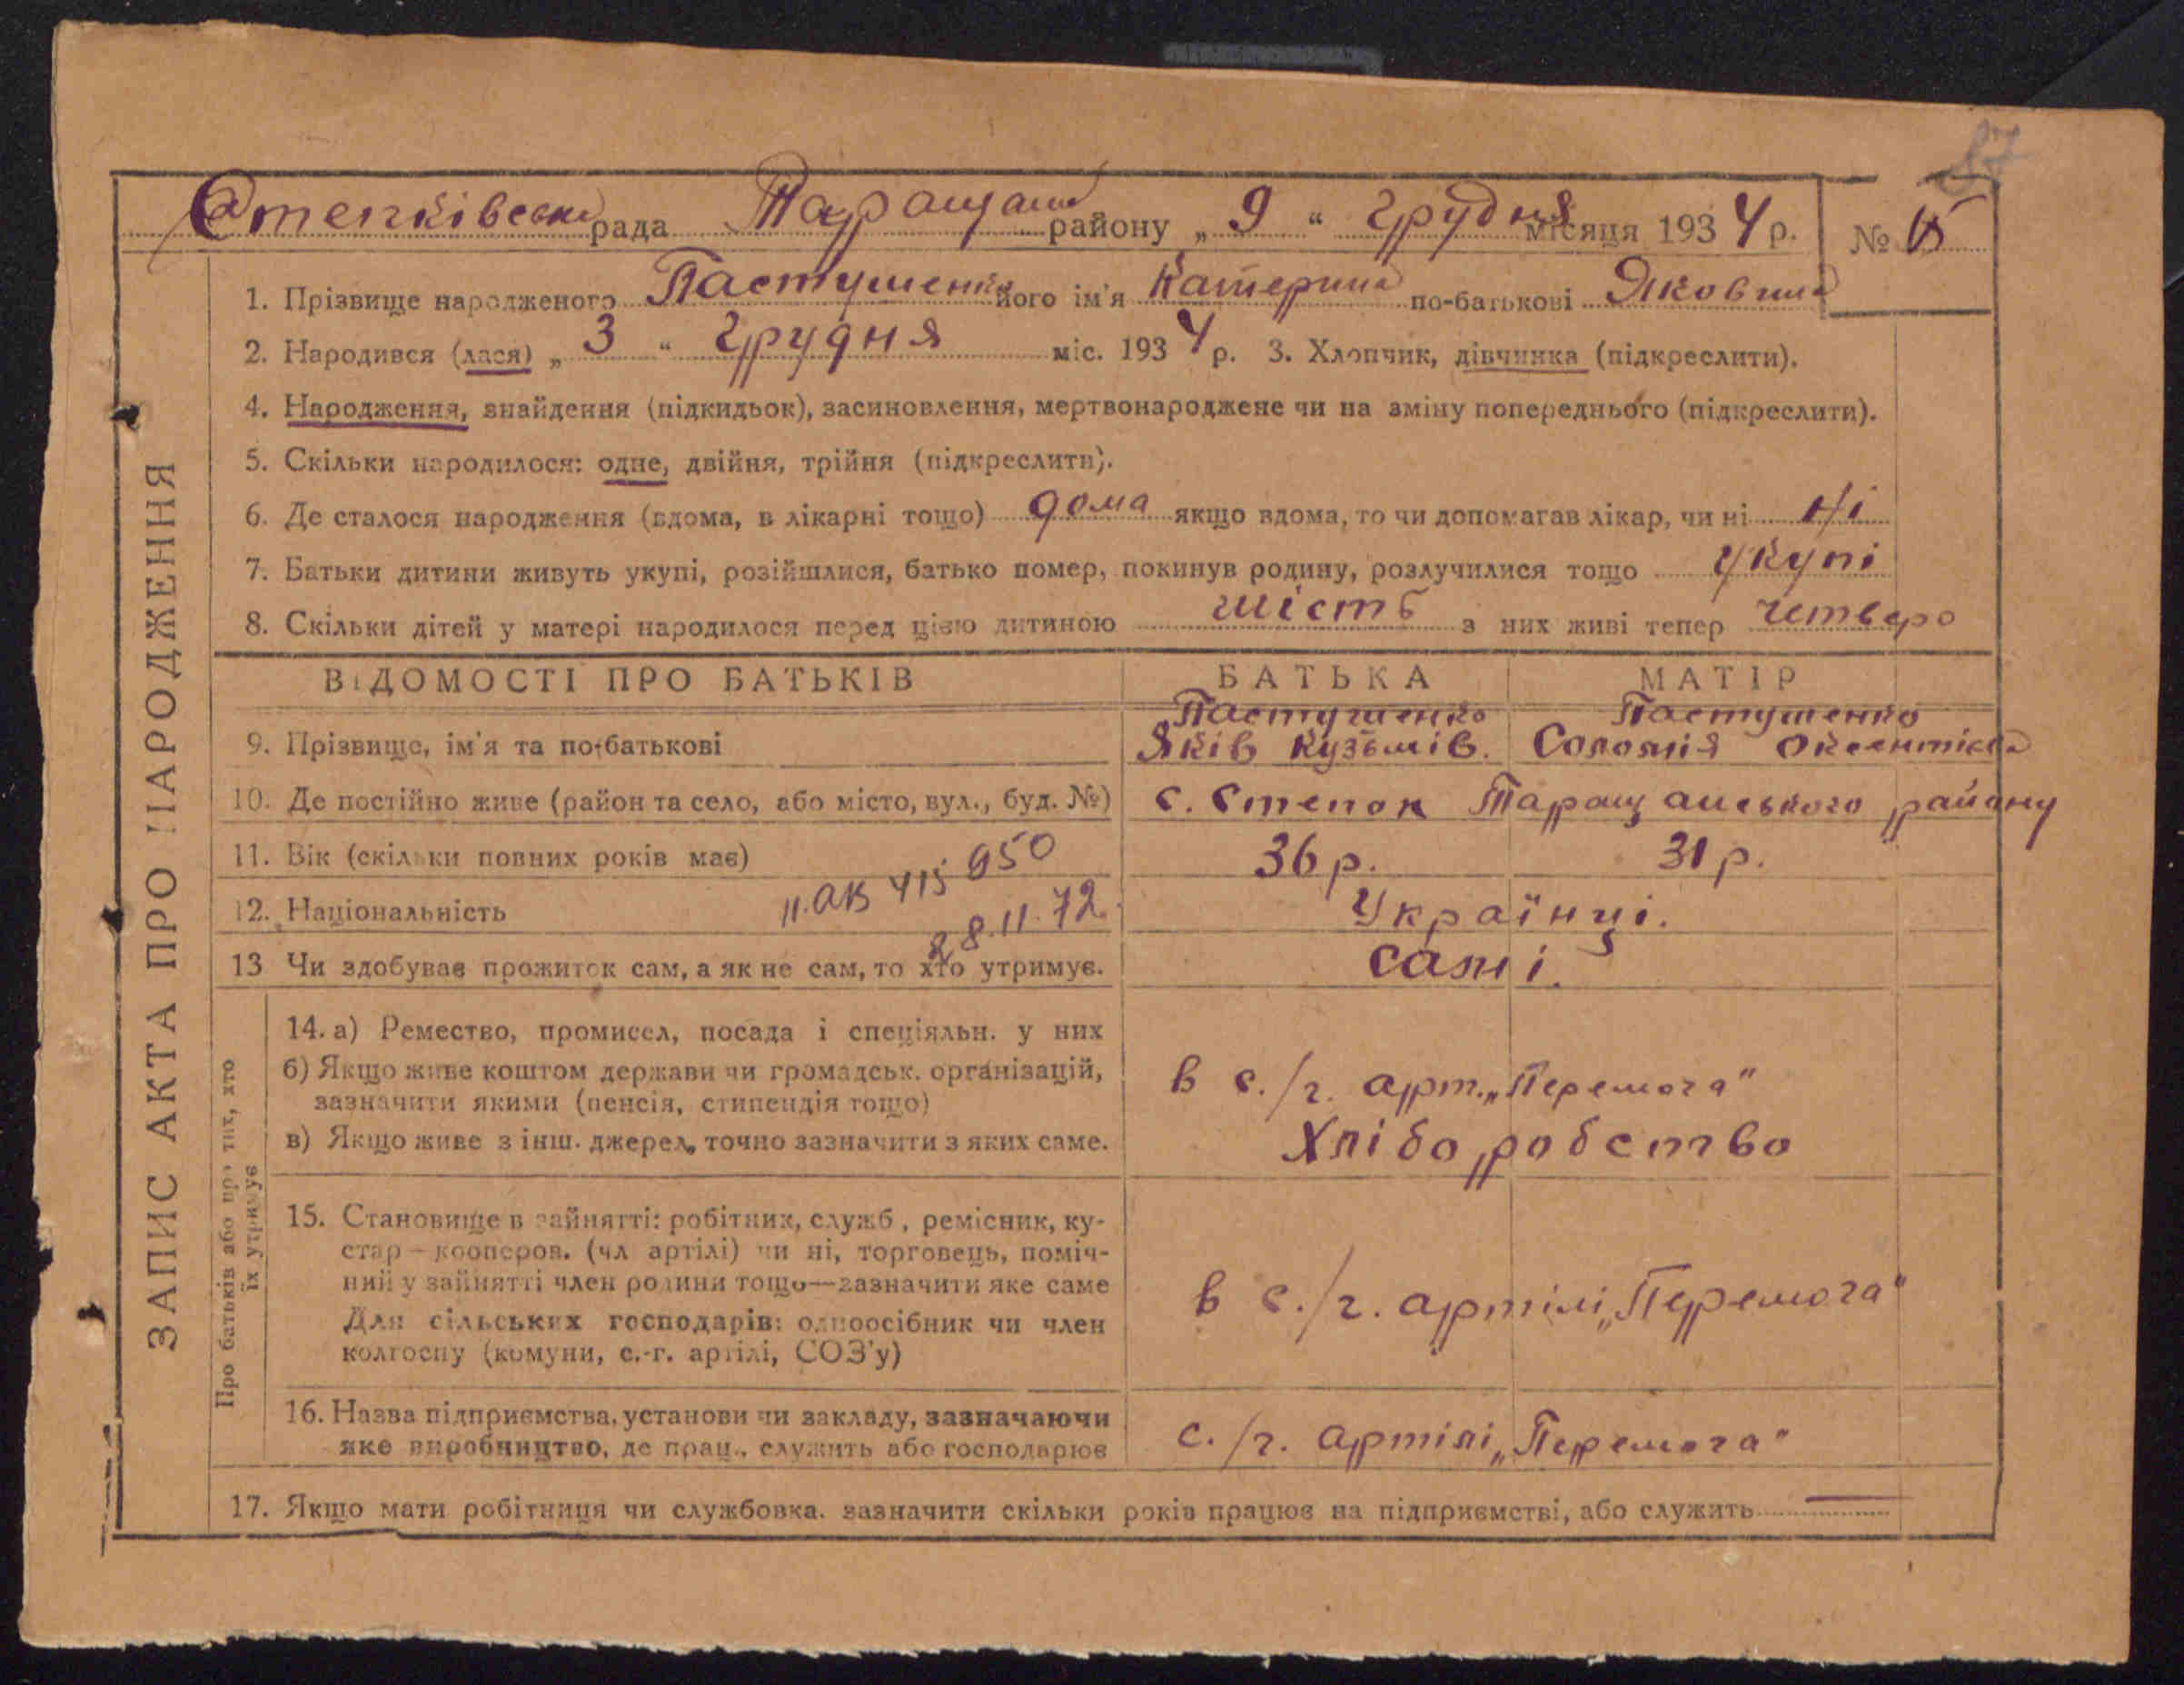 ЗАПИС АКТА ПРО НАРОДЖЕННЯ
Степківська рада Таращан району „ 9 “ грудня місяця 1934 р. №
1. Прізвище народженого Пастушенко його ім'я Катерина по-батькові Яковина
2. Народився (лася) „ 3 “ грудня міс. 1934 р. 3. Хлопчик, дівчинка (підкреслити).
4. Народження, знайдення (підкидьок), засиновлення, мертвонароджене чи на зміну попереднього (підкреслити).
5. Скільки народилося: одне, двійня, трійня (підкреслити).
6. Де сталося народження (вдома, в лікарні тощо) дома якщо вдома, то чи допомагав лікар, чи ні Ні
7. Батьки дитини живуть укупі, розійшлися, батько помер, покинув родину, розлучилися тощо укупі
8. Скільки дітей у матері народилося перед цією дитиною шість з них живі тепер четверо
ВІДОМОСТІ ПРО БАТЬКІВ БАТЬКА МАТІР
Пастушенко Пастушенко
9. Прізвище, ім'я та по-батькові Яків Кузьмів. Соломія Оксентієва
10. Де постійно живе (район та село, або місто, вул., буд. №) с. Степок Таращанського району
11. Вік (скільки повних років має) 36 р. 31 р.
11.ОК 415 950
12. Національність Українці.
28.11.72.
13 Чи здобуває прожиток сам, а як не сам, то хто утримує. самі.
Про батьків або про тих, хто
їх утримує
14. а) Ремество, промисел, посада і спеціяльн. у них
б) Якщо живе коштом держави чи громадськ. організацій, в с./г. арт. „Перемога“
зазначити якими (пенсія, стипендія тощо)
в) Якщо живе з інш. джерел, точно зазначити з яких саме. Хліборобство
15. Становище в зайнятті: робітник, служб., ремісник, ку-
стар — кооперов. (чл артілі) чи ні, торговець, поміч-
ний у зайнятті член родини тощо—зазначити яке саме в с./г. артілі „Перемога“
Для сільських господарів: одноосібник чи член
колгоспу (комуни, с.-г. артілі, СОЗ'у)
16. Назва підприємства, установи чи закладу, зазначаючи
яке виробництво, де прац., служить або господарює с./г. артілі „Перемога“
17. Якщо мати робітниця чи службовка. зазначити скільки років працює на підприємстві, або служить —